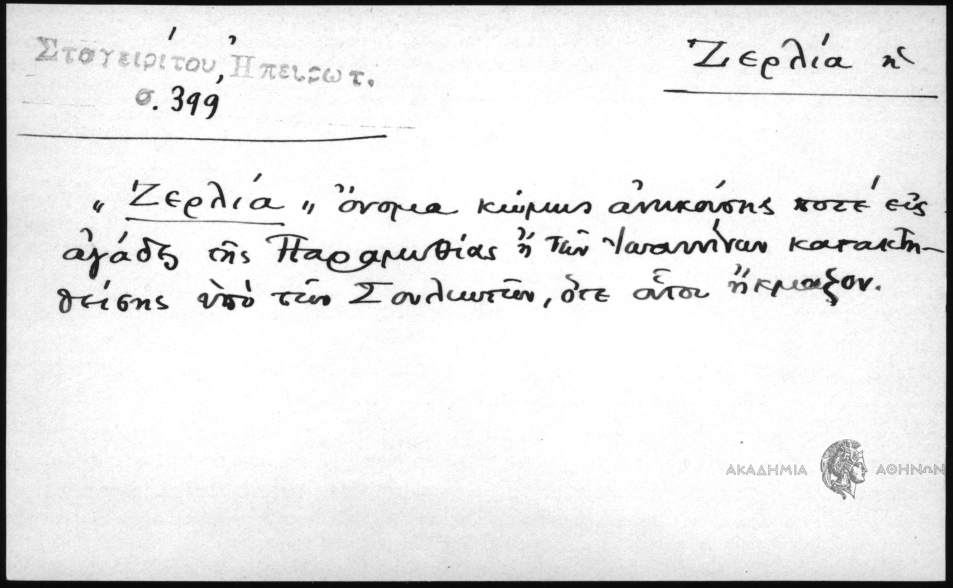 Σταγειρίτου, Ἠπειρωτ.
σ. 399
Ζερλία ἡ
„ Ζερλία „ ὄνομα κώμης ἀνηκούσης ποτέ εἰς
ἀγάδες τῆς Παραμυθίας ἢ τῶν Ἰωαννίνων κατακτη-
θείσης ὑπὸ τῶν Σουλιωτῶν, ὅτε οὗτοι ἤκμαζον.
ΑΚΑΔΗΜΙΑ ΑΘΗΝΩΝ